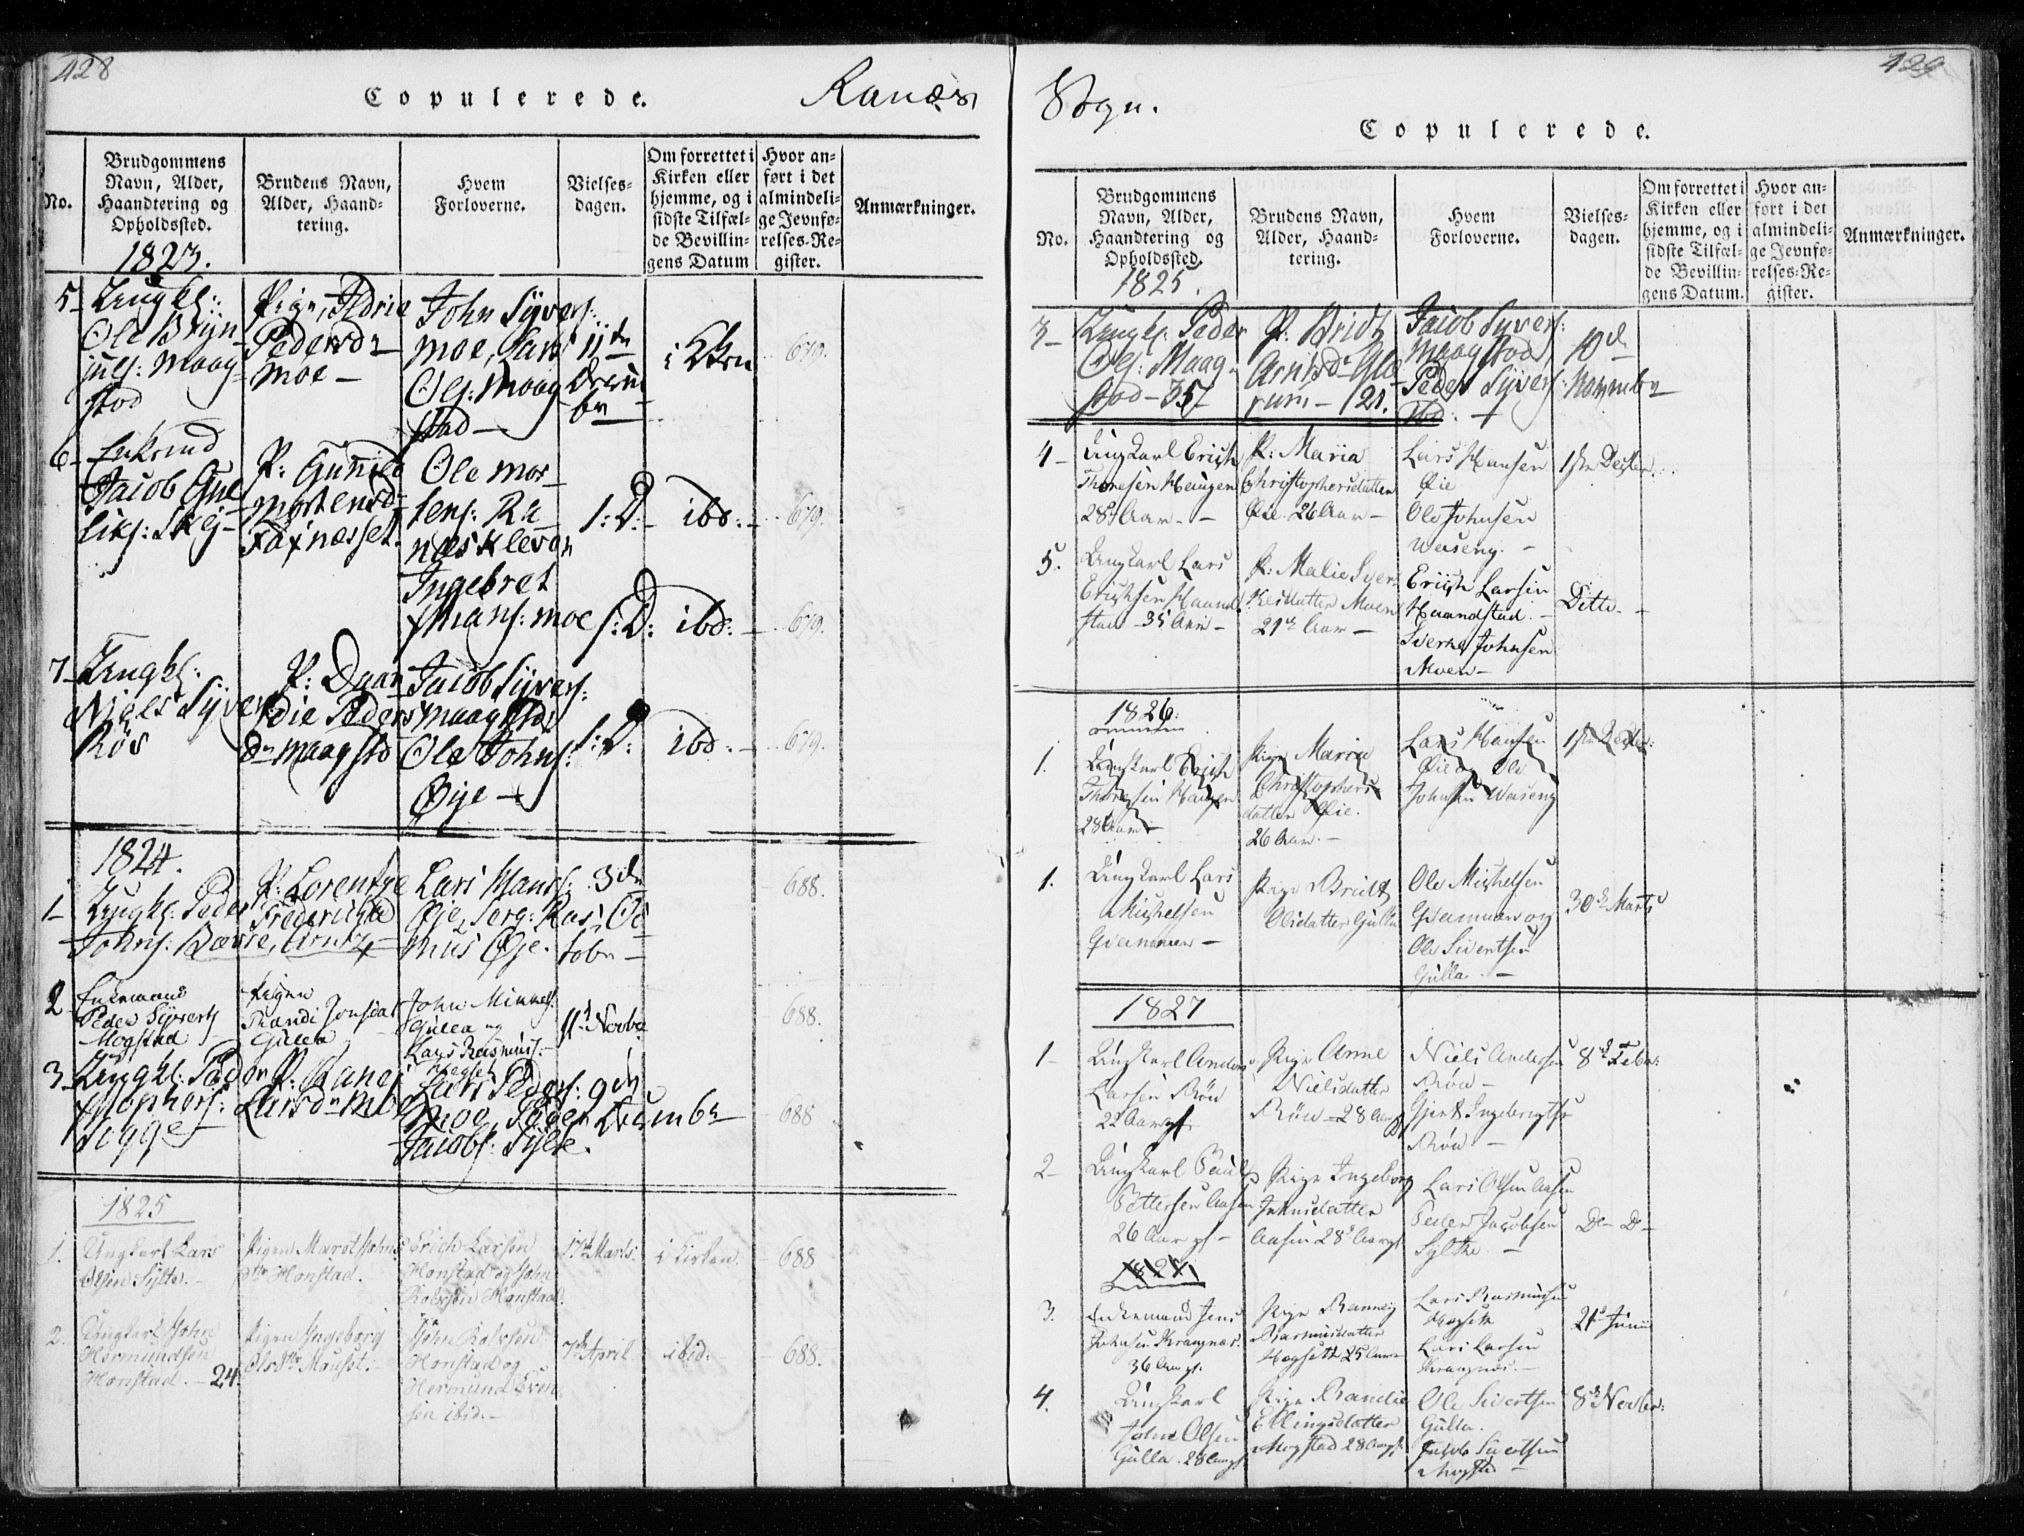 428
Copulerede.
Ranæs
No.
Brudgommens
Navn, Alder,
Haandtering og
Opholdssted.
Brudens Navn,
Alder, Haand-
tering.
Hvem
Forloverne.
Vielses-
dagen.
Om forrettet i
Kirken eller
hjemme, og i
sidste Tilfæl-
de Bevillin-
gens Datum
Hvor an-
ført i det
almindeli-
ge Jevnfø-
relses-Re-
gister.
Anmærkninger.
1823.
5 Ungkl:
Ole Brýn-
julf: Maag-
stad
Pige,
Pedersd
Moe -
John Syvers:
Moe, Lars
Ols: Maag
stad -
11te
Decem
br
i Kirken
679.
6 Enkemd
Jacob
P: Gunild
Mortensd
Faxnesset.
Ole Mor
tens: Ra
næs Kleven
Ingebret
Hans: Moe
S: D: -
S: D:
ibd: -
ibd: -
679.
679.
7 Ungkl:
Niels Syvers
Røv
P: Daar
die Peders
dr Maagstd
Jacob Syvers:
Maagstd
Ole Johns:
Øye -
S: D:
ibd: -
679.
1824.
1 Ungkl: Peder
Johns: Bævre,
P: Lorentze
Frederichs
Lars Hans:
Øje, Serg: Ras
mus Øje.
3de
Oc
tobr -
688.
2 Enkemand
Peder Syverts
Mogstad
Pigen
Randi Jonsdat
Gulla
John
Gulla og
Lars Rasmus:
11t Novbr
688.
3 Ungkl: Peder
Larsd Moe
Lars Peders:
Moe, Peder
Jacobs: Sylte.
9de
Decembr
688
1825
1. Ungkarl Lars
Olsen Sylte. -
Pigen Marit Johns
dtr Honstad.
Erich Larsen
Honstad og John
Rolvsen Honstad.
17de Marts.
i Kirken.
688
2. Ungkarl John
Hermundsen
Honstad. - 24.
Pigen Ingeborg
Olsdtr Mauset. -
John Rolvsen
Honstad og
Hermund Even
sen ibid. -
7de April
ibid.
688.
429
Sogn.
Copulerede.
No.
Brudgommens
Navn, Alder,
Haandtering og
Opholdssted.
Brudens Navn,
Alder, Haand-
tering.
Hvem
Forloverne.
Vielses-
dagen.
Om forrettet i
Kirken eller
hjemme, og i
sidste Tilfæl-
de Bevillin-
gens Datum.
Hvor an-
ført i det
almindeli-
ge Jevnfø-
relses-Re-
gister.
Anmærkninger.
1825.
3 Ungkl: Peder
Ols: Maag-
stad - 35
P: Bridt
Arntsd Glæ
rum - 121.
Jacob Syvers:
Maagstad
Peder Syvers:
ibd:
10de
Novembr
4 - Ungkarl Erich
Thoresen Haugen
28 Aar. -
P: Maria
Christophersdatter
Øie. 26 Aar -
Lars Hansen
Øie
Ole Johnsen
Waseng. -
1ste Decbr.
5. Ungkarl Lars
Erichsen Haand
stad - 35 Aar -
P: Malie Sver
kesdatter Moen
21 Aar -
Erich Larsen
Haandstad. -
Sverke Johnsen
Moen -
Ditto -
1826.
1. Ungkarl Erich
Thoresen Haugen
28 Aar -
Pige Maria
Christophers
datter Øie.
26 Aar. -
Lars Hansen
Øie og Ole
Johnsen Waseng
1ste Decbr:
1. Ungkarl Lars
Michelsen
Qvammen -
Pige Bridt
Olsdatter Gulla
Ole Michelsen
Qvammen og
Ole Sivertsen
Gulla. -
30te Marts
1827
1 - Ungkarl Anders
Larsen Røv
22 Aar gl
Pige Anne
Nielsdatter
Røv - 28 Aar gl
Niels Andersen
Røv -
Gjert Ingebrigtsen
Røv -
8de Febr:
2 Ungkarl Paul
Pettersen Aasen
26 Aar gl -
Pige Ingeborg
Johnsdatter
Aasen 28 Aar gl
Lars Olsen Aasen
Peder Jacobsen
Sylte. -
D - D -
1827
3. Enkemand Jens
Johnsen Krangnæs.
36 Aar gl.
Pige Rannej
Rasmusdatter
Hogsett 25 Aar
Lars Rasmussen
Hogsett
Lars Larsen
Krangnæs. -
21de Junii
4. Ungkarl
John Olsen
Gulla. 28 Aar gl
Pige Randie
Ellingsdatter
Mogstad 28 Aar gl
Ole Sivertsen
Gulla.
Jacob Sivertsen
Mogstad -
8de Novbr: